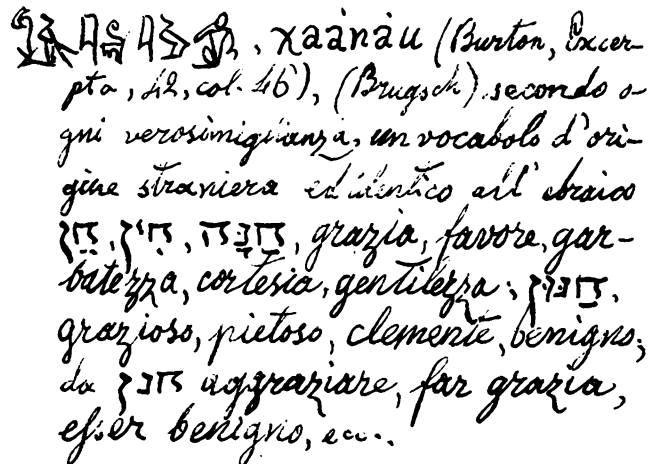 , χaànàu (Burton, Excer-
pta, 42, col. 46), (Brugsch) secondo o-
gni verosimiglianza, un vocabolo d'ori-
gine straniera ed identico all' ebraico
חֵן, חִין, חֲנִנָה, grazia, favore, gar-
batezza, cortesia, gentilezza; חַנּוּן,
grazioso, pietoso, clemente, benigno;
da חנן aggraziare, far grazia,
esser benigno, ecc..